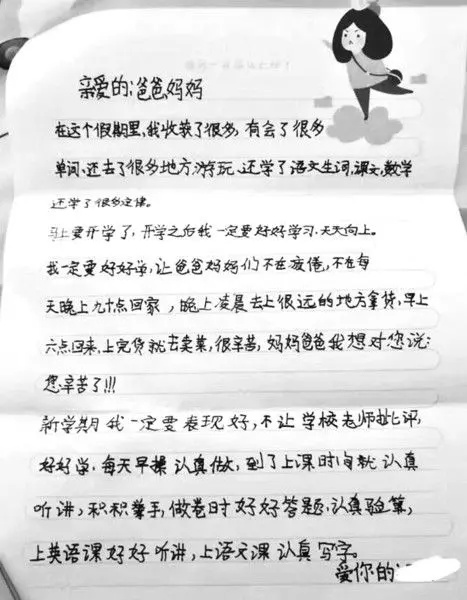 亲爱的爸爸妈妈
在这个假期里,我收获了很多,有会了很多
单词,还去了很多地方游玩,还学了语文生词,课文,数学
还学了很多定律。
马上要开学了,开学之后我一定要好好学习,天天向上。
我一定要好好学,让爸爸妈妈们不在疲倦,不在每
天晚上九十点回家,晚上凌晨去上很远的地方拿货,早上
六点回来,上完货就去卖菜,很辛苦,妈妈爸爸我想对您说:
您辛苦了!!!
新学期我一定要表现好,不让学校老师批评,
好好学,每天早操认真做,到了上课时间就认真
听讲,积积举手,做卷时好好答题,认真验算,
上英语课好好听讲,上语文课认真写字。
爱你的